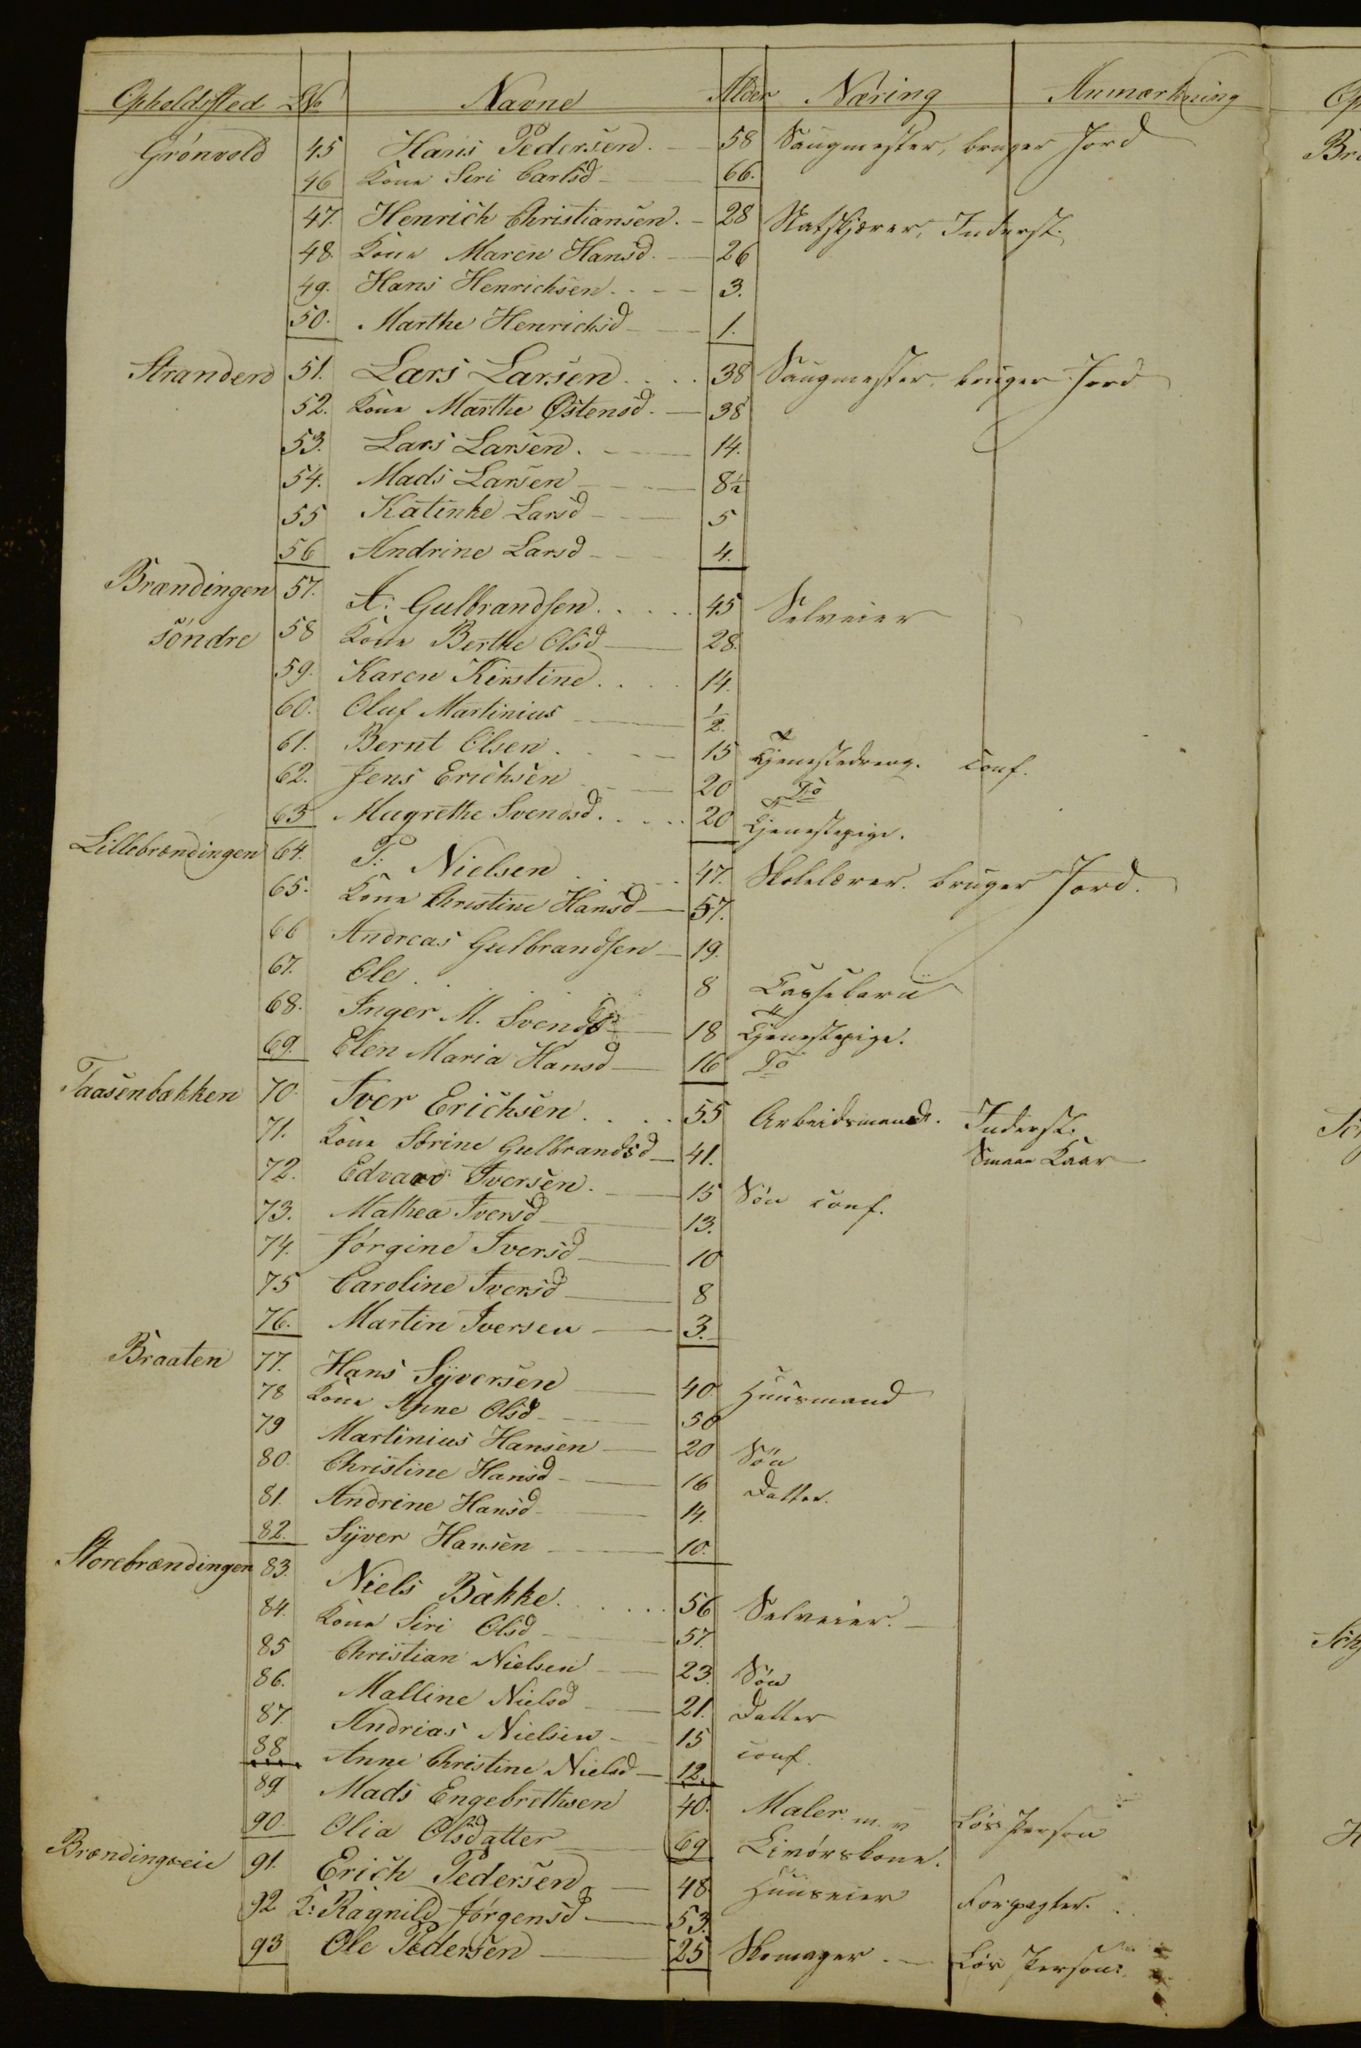 Opholdsted No Navne Alder Næring Anmærkning
Grönvold 45 Hans Pedersen. 58 Saugmester, bruger Jord
46 Kone Siri Carlsd 66.
47. Henrich Christiansen. 28 Inderst.
48 Kone Maren Hansd. 26
49. Hans Henrichsen 3.
50. Marthe Henrichsd 1.
Stranden 51. Lars Larsen 38 Saugmester. bruger Jord
52. Kone Marthe Østensd. 38
53. Lars Larsen. 14.
54. Mads Larsen 8½
55 Katinke Larsd 5
56 Andrine Larsd 4.
Brændingen 57. A: Gulbrandsen 45 Selveier
söndre 58 Kone Berthe Olsd 28.
59. Karen Kirstine 14.
60. Oluf Martinius ½.
61. Bernt Olsen 15 Tjenestedreng. conf.
62. Jens Erichsen 20 Do
63 Magrethe Svendsd. 20 Tjenestepige.
Lillebrændingen 64. P: Nielsen 47. Skolelærer. bruger Jord.
65. Kone Christine Hansd 57.
66 Andreas Gulbrandsen 19.
67. Ole 8
68. Inger M. Svendsd 18 Tjenestepige.
69. Elen Maria Hansd 16 Do
Taasenbakken 70. Iver Erichsen 55 Arbeidsmand. Inderst.
71. Kone Sörine Gulbrandsd 41. Smaae Kaar
72. Edvard Iversen. 15 Sön conf.
73. Mathea Iversd 13.
74. Jörgine Iversd 10
75 Caroline Iversd 8
76. Martin Iversen 3.
Braaten 77. Hans Syversen 40 Huusmand
78 Kone Anne Olsd 50
79 Martinius Hansen 20 Sön
80. Christine Hansd 16 Datter.
81. Andrine Hansd 14.
82. Syver Hansen 10.
Storebrændingen 83. Niels Bække 56 Selveier.
84. Kone Siri Olsd 57.
85 Christian Nielsen 23. Sön
86. Malline Nielsd 21. Datter
87. Andrias Nielsen 15 conf.
88 Anne Christine Nielsd 12.
89. Mads Engebrethsen 40. Maler m. v Lös Person
90. Olia Olsdatter 69 Livörskone.
Brændingseie 91. Erich Pedersen 48 Huuseier Forpagter.
92 K: Ragnild Jörgensd 53.
93 Ole Pedersen 25 Skomager. Lös Person.